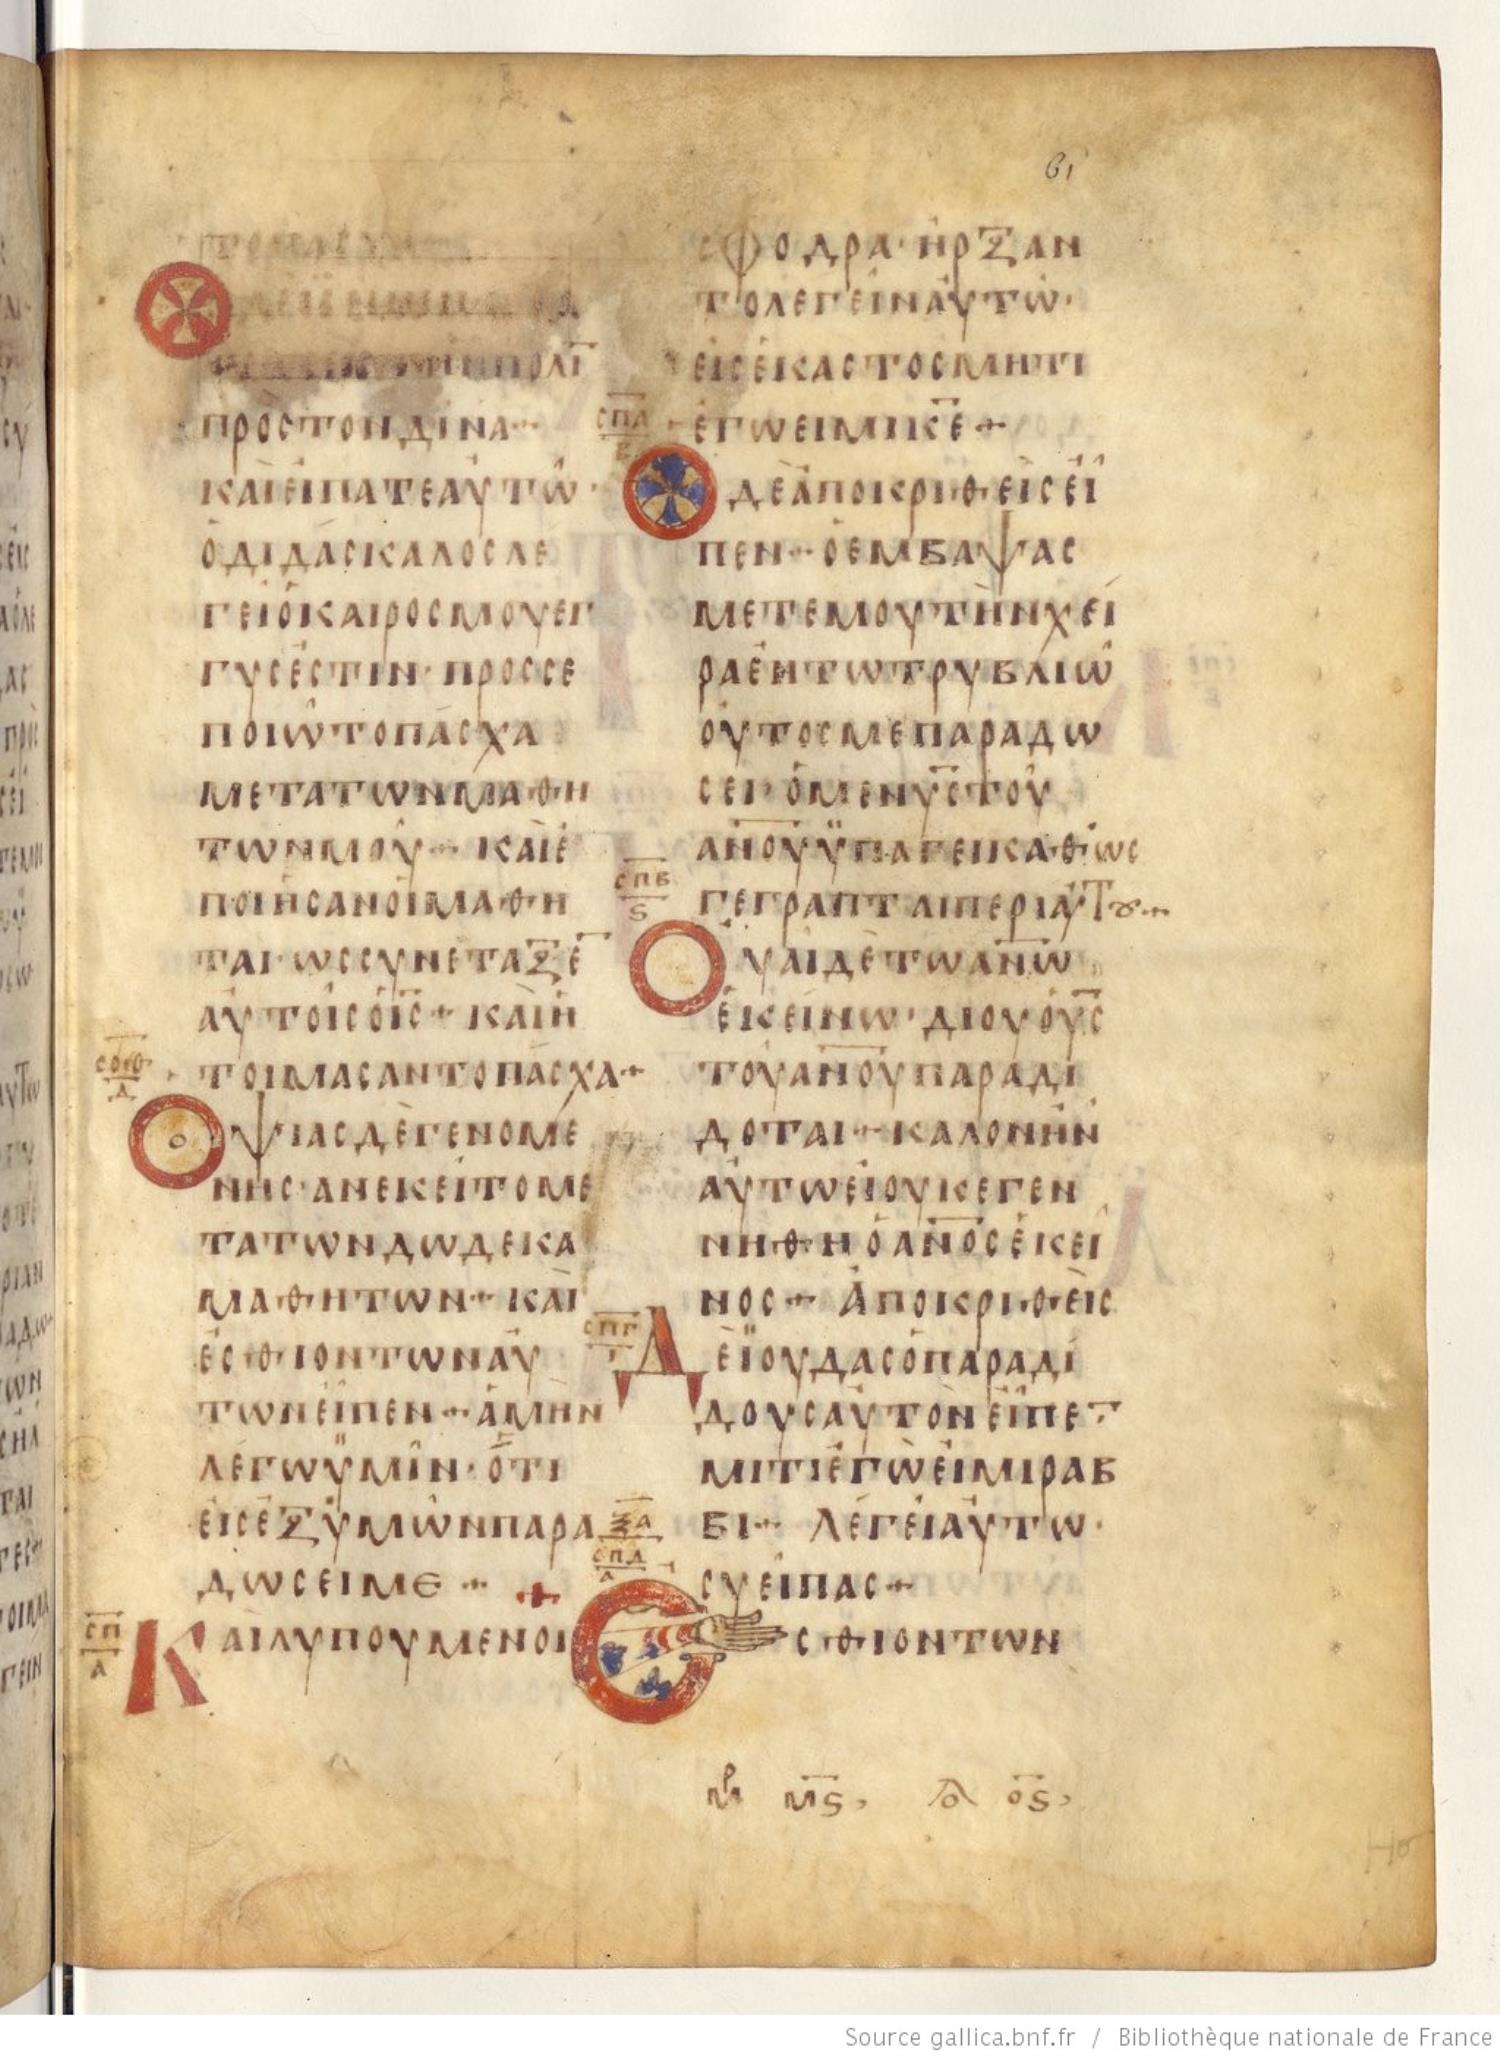 61
ΠΡΟΣΤΟΝΔΙΝΑ
ΚΑΙΕΙΠΑΤΕΑΥΤΩ·
ΟΔΙΔΑΣΚΑΛΟΣΛΕ
ΓΕΙΟΚΑΙΡΟΣΜΟΥΕΓ
ΓΥΣΕΣΤΙΝ·ΠΡΟΣΣΕ
ΠΟΙΩΤΟΠΑΣΧΑ
ΜΕΤΑΤΩΝΜΑΘΗ
ΤΩΝΜΟΥ+ ΚΑΙΕ
ΠΟΙΗΣΑΝΟΙΜΑΘΗ
ΤΑΙ·ΩΣΣΥΝΕΤΑΞΕ̅
ΑΥΤΟΙΣΟΙ̅Σ̅+ ΚΑΙΗ
ΣΟΘ
Δ
ΤΟΙΜΑΣΑΝΤΟΠΑΣΧΑ+
ΟΨΙΑΣΔΕΓΕΝΟΜΕ
ΝΗΣ·ΑΝΕΚΕΙΤΟΜΕ
ΤΑΤΩΝΔΩΔΕΚΑ
ΜΑΘΗΤΩΝ+ ΚΑΙ
ΕΣΘΙΟΝΤΩΝΑΥ
ΤΩΝΕΙΠΕΝ+ΑΜΗΝ
ΛΕΓΩΫΜΙΝ·ΟΤΙ
ΕΙΣΕΞΥΜΩΝΠΑΡΑ
ΔΩΣΕΙΜΕ + +
ΣΠ
Α
ΚΑΙΛΥΠΟΥΜΕΝΟΙ
ΣΦΟΔΡΑ·ΗΡΞΑΝ
ΤΟΛΕΓΕΙΝΑΥΤΩ·
ΕΙΣΕΚΑΣΤΟΣΜΗΤΙ
ΣΠΑ
ΕΓΩΕΙΜΙΚ̅Ε̅+
ΟΔΕΑΠΟΚΡΙΘΕΙΣΕΙ
ΠΕΝ+ΟΕΜΒΑΨΑΣ
ΜΕΤΕΜΟΥΤΗΝΧΕΙ
ΡΑΕΝΤΩΤΡΥΒΛΙΩ
ΟΥΤΟΣΜΕΠΑΡΑΔΩ
ΣΕΙ·ΟΜΕΝΥ̅Σ̅ΤΟΥ
ΑΝ̅Ο̅Υ̅ΫΠΑΓΕΙΚΑΘΩΣ
ΣΠΒ
Ϛ
ΓΕΓΡΑΠΤΑΙΠΕΡΙΑΥΤȢ+
ΟΥΑΙΔΕΤΩΑΝ̅Ω̅
ΕΚΕΙΝΩ·ΔΙΟΥΟΥ̅Σ̅
ΤΟΥΑΝ̅Ο̅Υ̅ΠΑΡΑΔΙ
ΔΟΤΑΙ+ΚΑΛΟΝΗΝ
ΑΥΤΩΕΙΟΥΚΕΓΕΝ
ΝΗΘΗΟΑΝ̅Ο̅Σ̅ΕΚΕΙ
ΝΟΣ+ ΑΠΟΚΡΙΘΕΙΣ
ΣΠΓ
Ι
ΔΕΪΟΥΔΑΣΟΠΑΡΑΔΙ
ΔΟΥΣΑΥΤΟΝΕΙΠΕ̅
ΜΙΤΙΕΓΩΕΙΜΙΡΑΒ
ΒΙ+ ΛΕΓΕΙΑΥΤΩ·
ΞΑ
ΣΠΔ
Α
ΣΥΕΙΠΑΣ+
ΕΣΘΙΟΝΤΩΝ
ΜΡ Μ̅Ϛ̅, Λο Ο̅Ϛ̅,
Source gallica.bnf.fr / Bibliothèque nationale de France